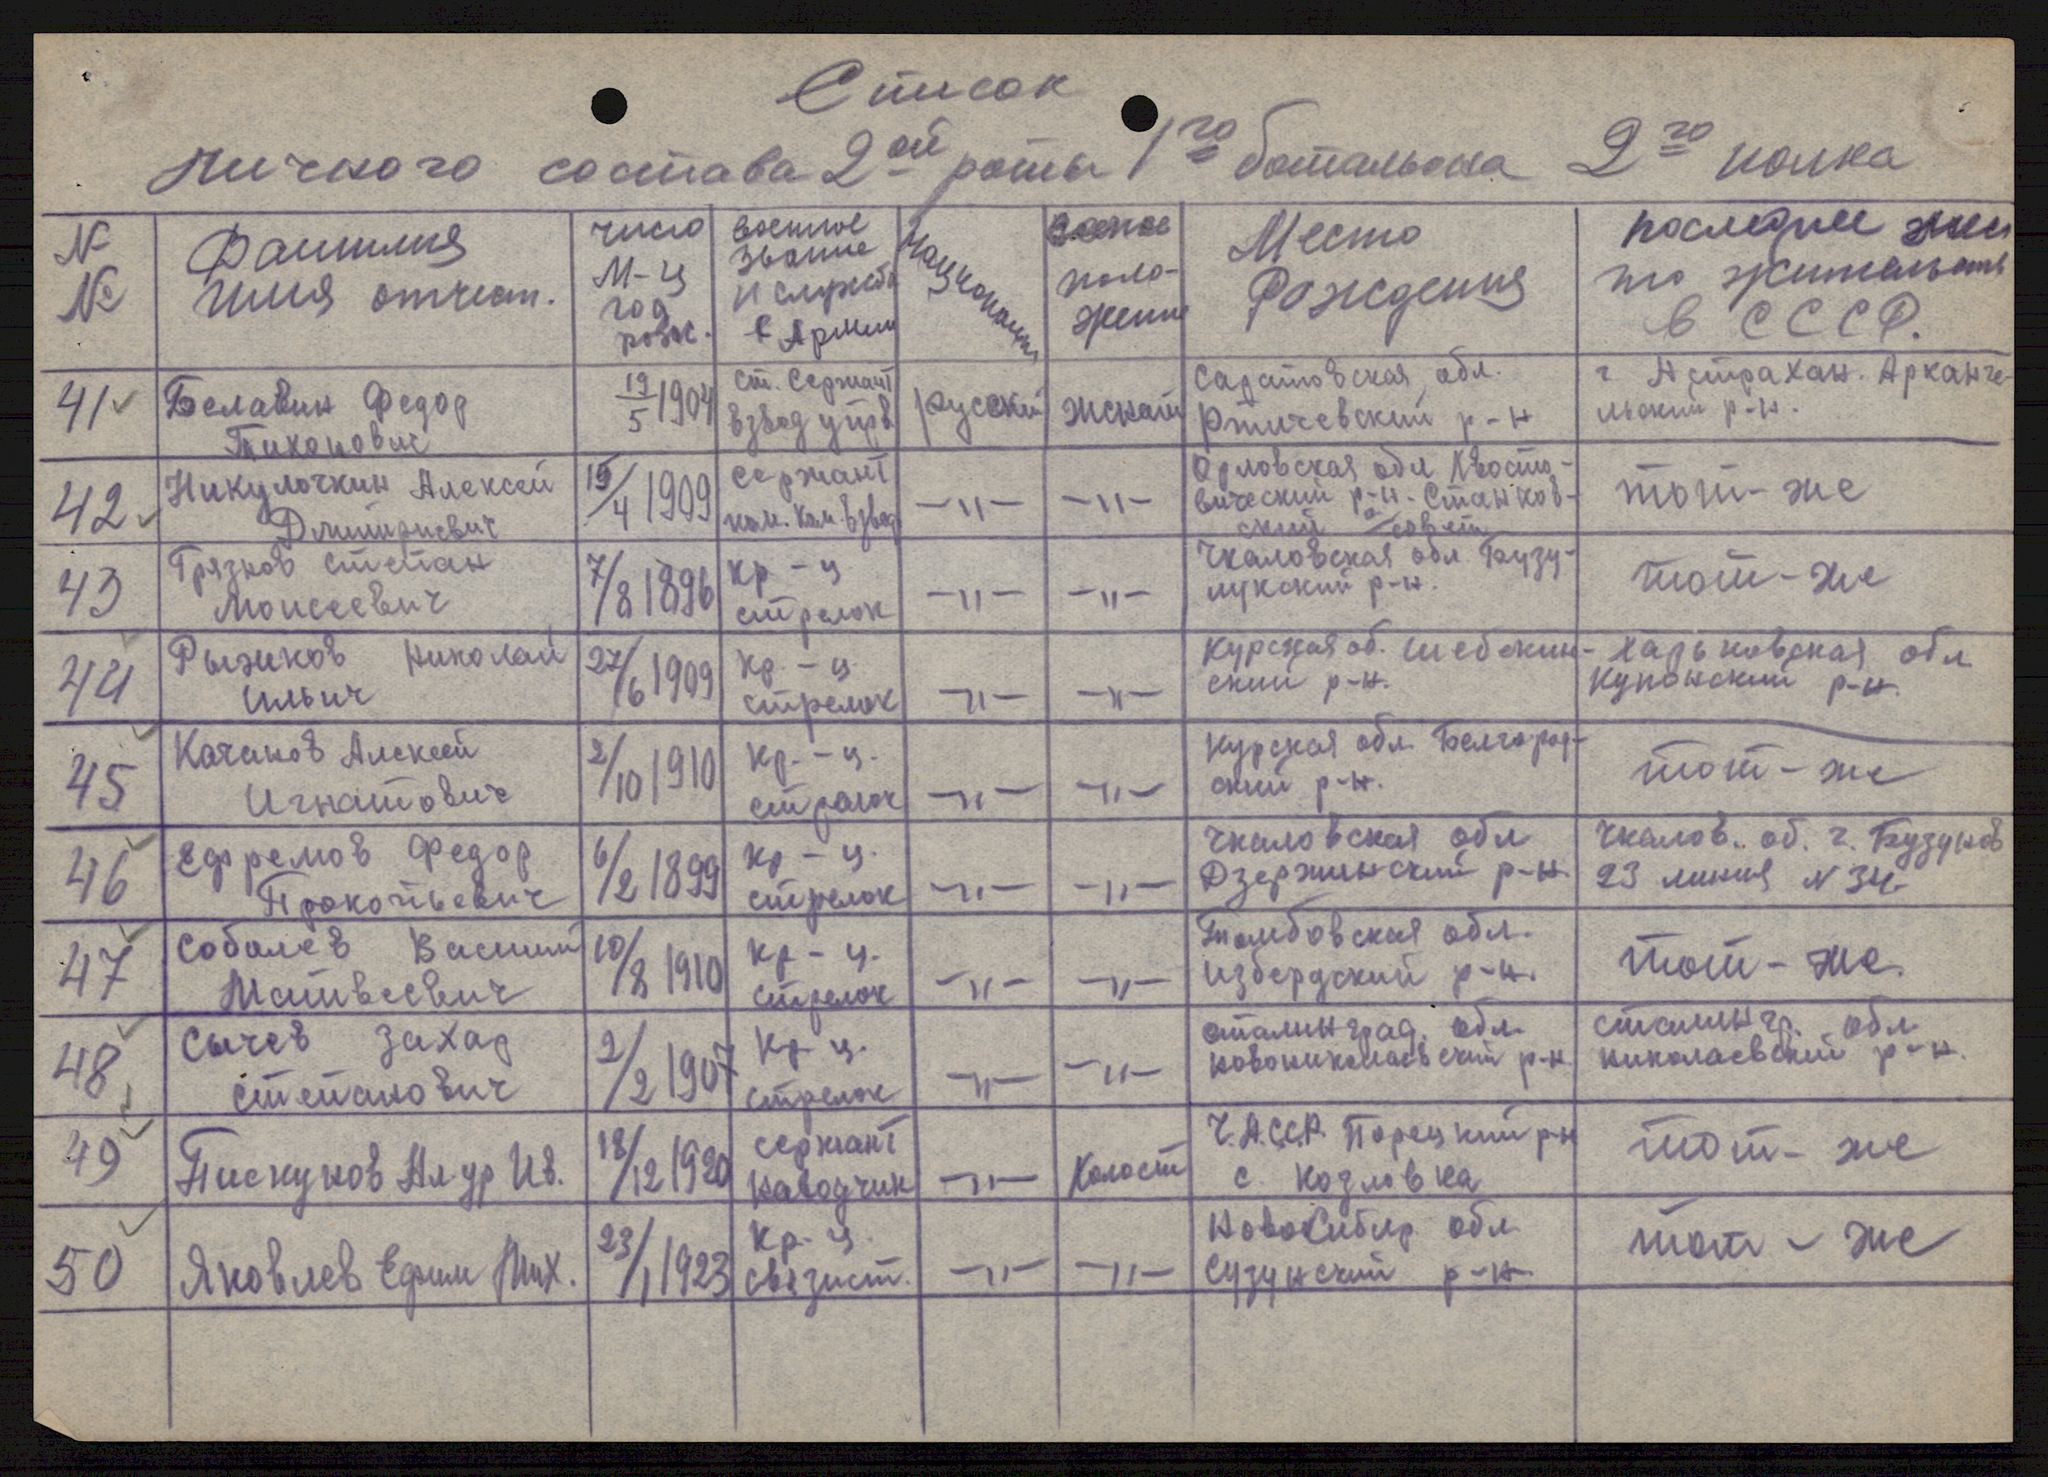 Список
Личного состава 2ой роты 1го батальона 2го полка
№ №
Фамилия
имя отчест.
число
м-ц
год
рожд.
военное
звание
и служба
в Армии
национальн
поло-
жение
Место
Рождения
последнее
то жительств
в СССР.
41 Белавин Федор Тихонович 19/5 1904 ст. Сержант взвод упр. русский женат Саратовская обл. Ртичевский р-н г. Астрахан. Арканге-льский р-н.
42 Никулочкин Алексей Дмитриевич 15/4 1909 сержант пом. ком. взвод. -"- -"- Орловская обл Хвосто-вический р-н. Станков-ский с/совет тот-же
43 Грязнов Степан Моисеевич 7/8 1896 кр-ц стрелок -"- -"- Чкаловская обл Бузу-лукский р-н. тот-же
44 Рыжков Николай Ильич 27/6 1909 кр.-ц. стрелок -"- -"- Курская об. Шебекин-ский р-н. Харьковская обл Купянский р-н.
45 Качанов Алексей Игнатович 2/10 1910 кр.-ц. стрелок -"- -"- Курская обл. Белгород-ский р-н. тот-же
46 Ефремов Федор Прокопьевич 6/2 1899 кр-ц. стрелок -"- -"- Чкаловская обл Дзержинский р-н. Чкалов. об. г. Бузулов 23 линия N 34.
47 Соболев Василий Матвеевич 10/8 1910 кр-ц. стрелок -"- -"- Тамбовская обл. Избердский р-н. тот-же.
48 Сычев Захар Степанович 2/2 1907 кр-ц. стрелок -"- -"- сталинград. обл. новониколаевский р-н. сталингр. обл. николаевский р-н.
49 Пискунов Ал-др Ив. 18/12 1920 сержант наводчик -"- Холост Ч.А.С.С.Р. Порецкий р-н с. Козловка тот-же
50 Яковлев Ефим Мих. 23/1 1923 кр-ц. связист. -"- -"- Новосибир обл Сузунский р-н. тот-же